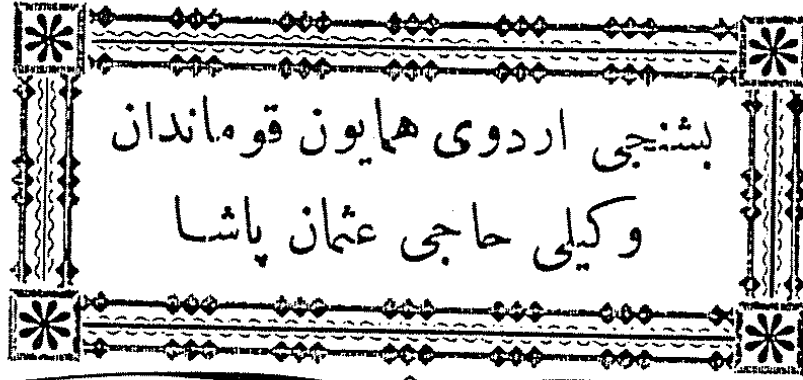 بشنجی اردوی همایون قوماندان
وکیلی حاجی عثمان پاشا